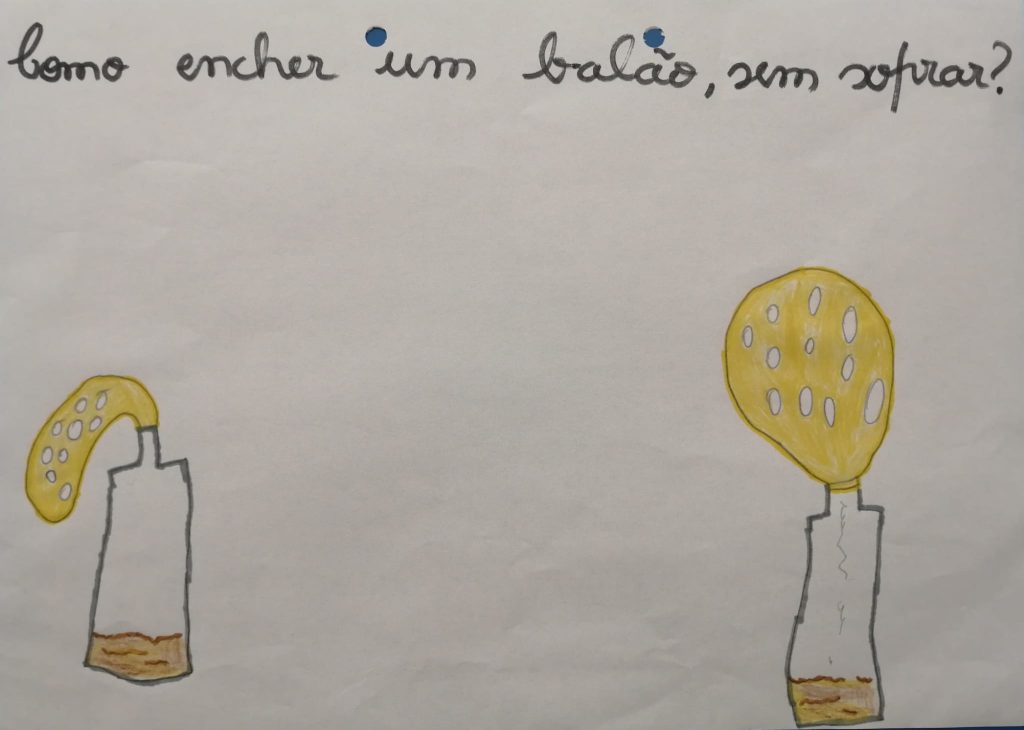 Como encher um balão, sem soprar?